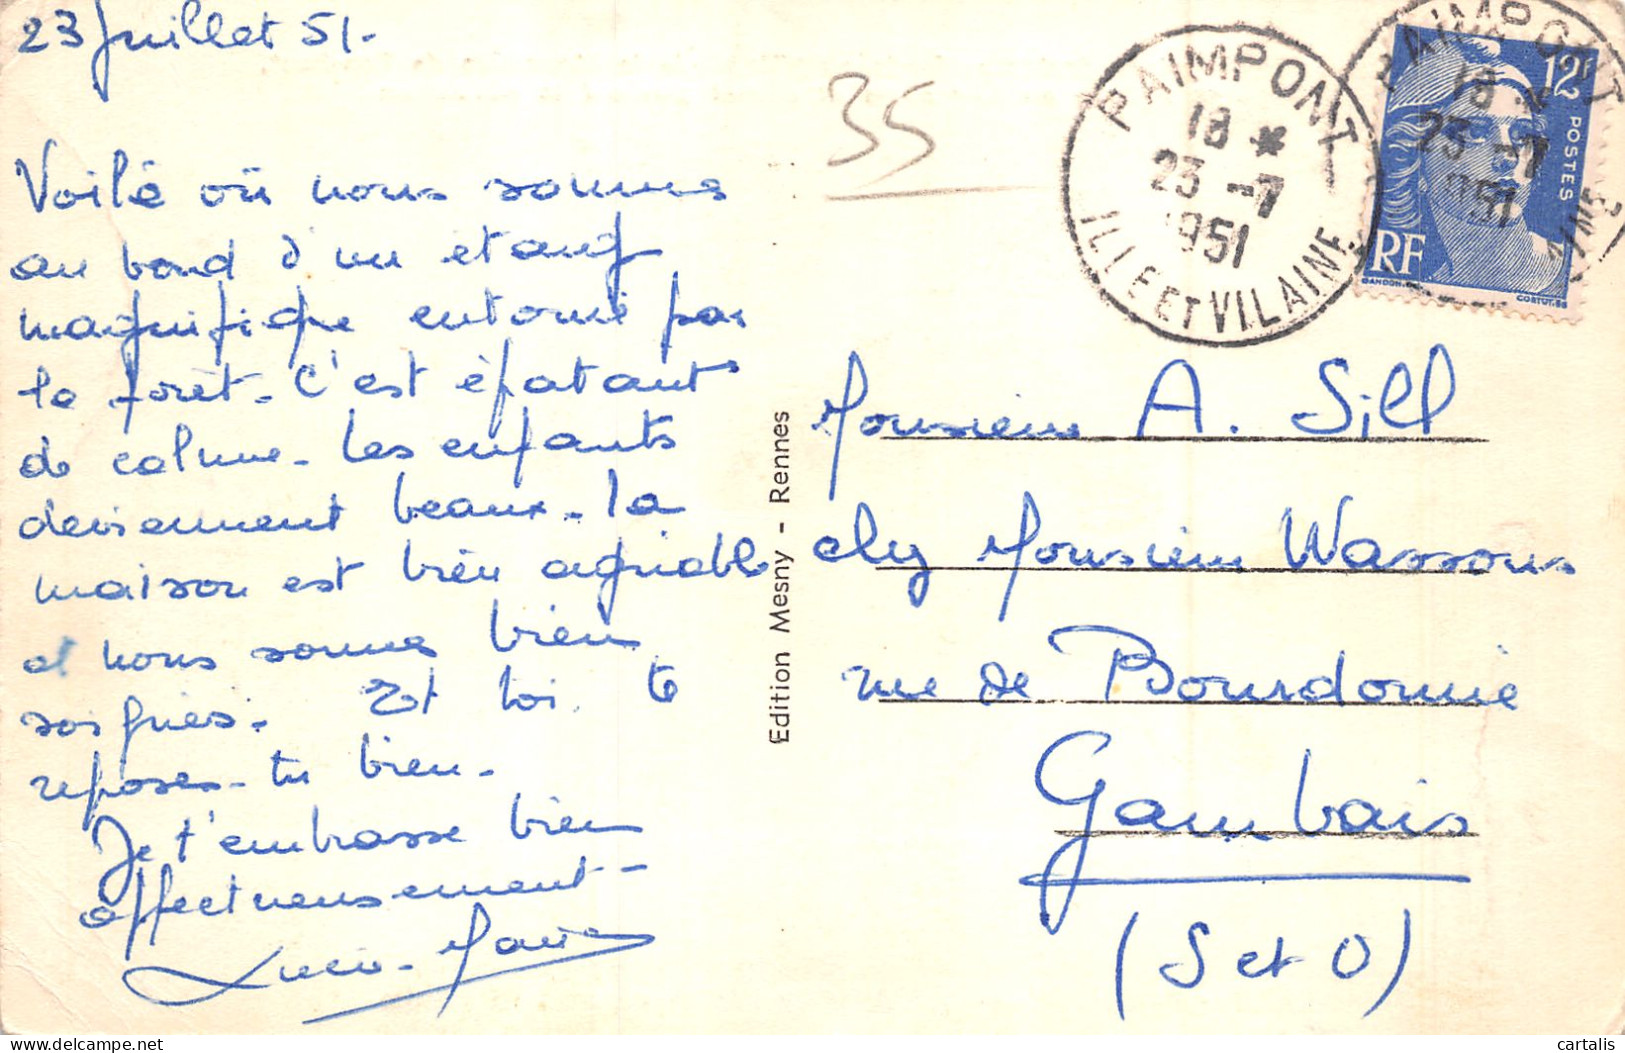 23 Juillet 51.
Voilà où nous sommes
au bord d'un étang
magnifique entouré par
la forêt. C'est épatant
de calme. Les enfants
deviennent beaux. la
maison est bien agréable
et nous sommes bien
soignés. Et toi te
reposes-tu bien.
Je t'embrasse bien
affectueusement
35
Edition Mesny - Rennes
PAIMPONT
18 *
23 -7
1951
ILLE ET VILAINE
PAIMPONT
18 *
23 -7
1951
12F
POSTES
RF
GANDON
CORTOT.SC
Monsieur A. Sill
chez Monsieur Wassous
rue de Bourdonné
Gambais
(S et O)
cartalis